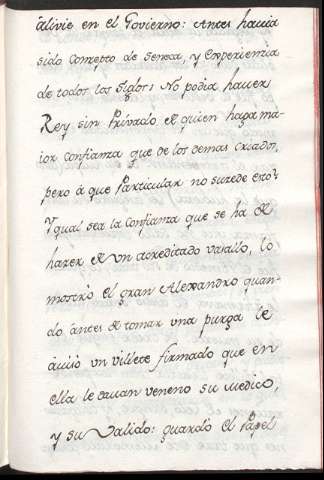 alivie en el Govierno: Antes havia
sido Concepto de Seneca, y Experiencia
de todos los Siglos: No podia haver
Rey sin Privado de quien haga ma-
ior Confianza que de los demas Criados,
pero à que Particular no sucede esto?
Y qual sea la Confianza que se ha de
hazer de un acreditado vasallo, lo
mostrò el gran Alexandro quan-
do àntes de tomar vna purga le
àuisò vn villete firmado que en
ella le dauan veneno su Medico,
y su Valido: guardò el Papel